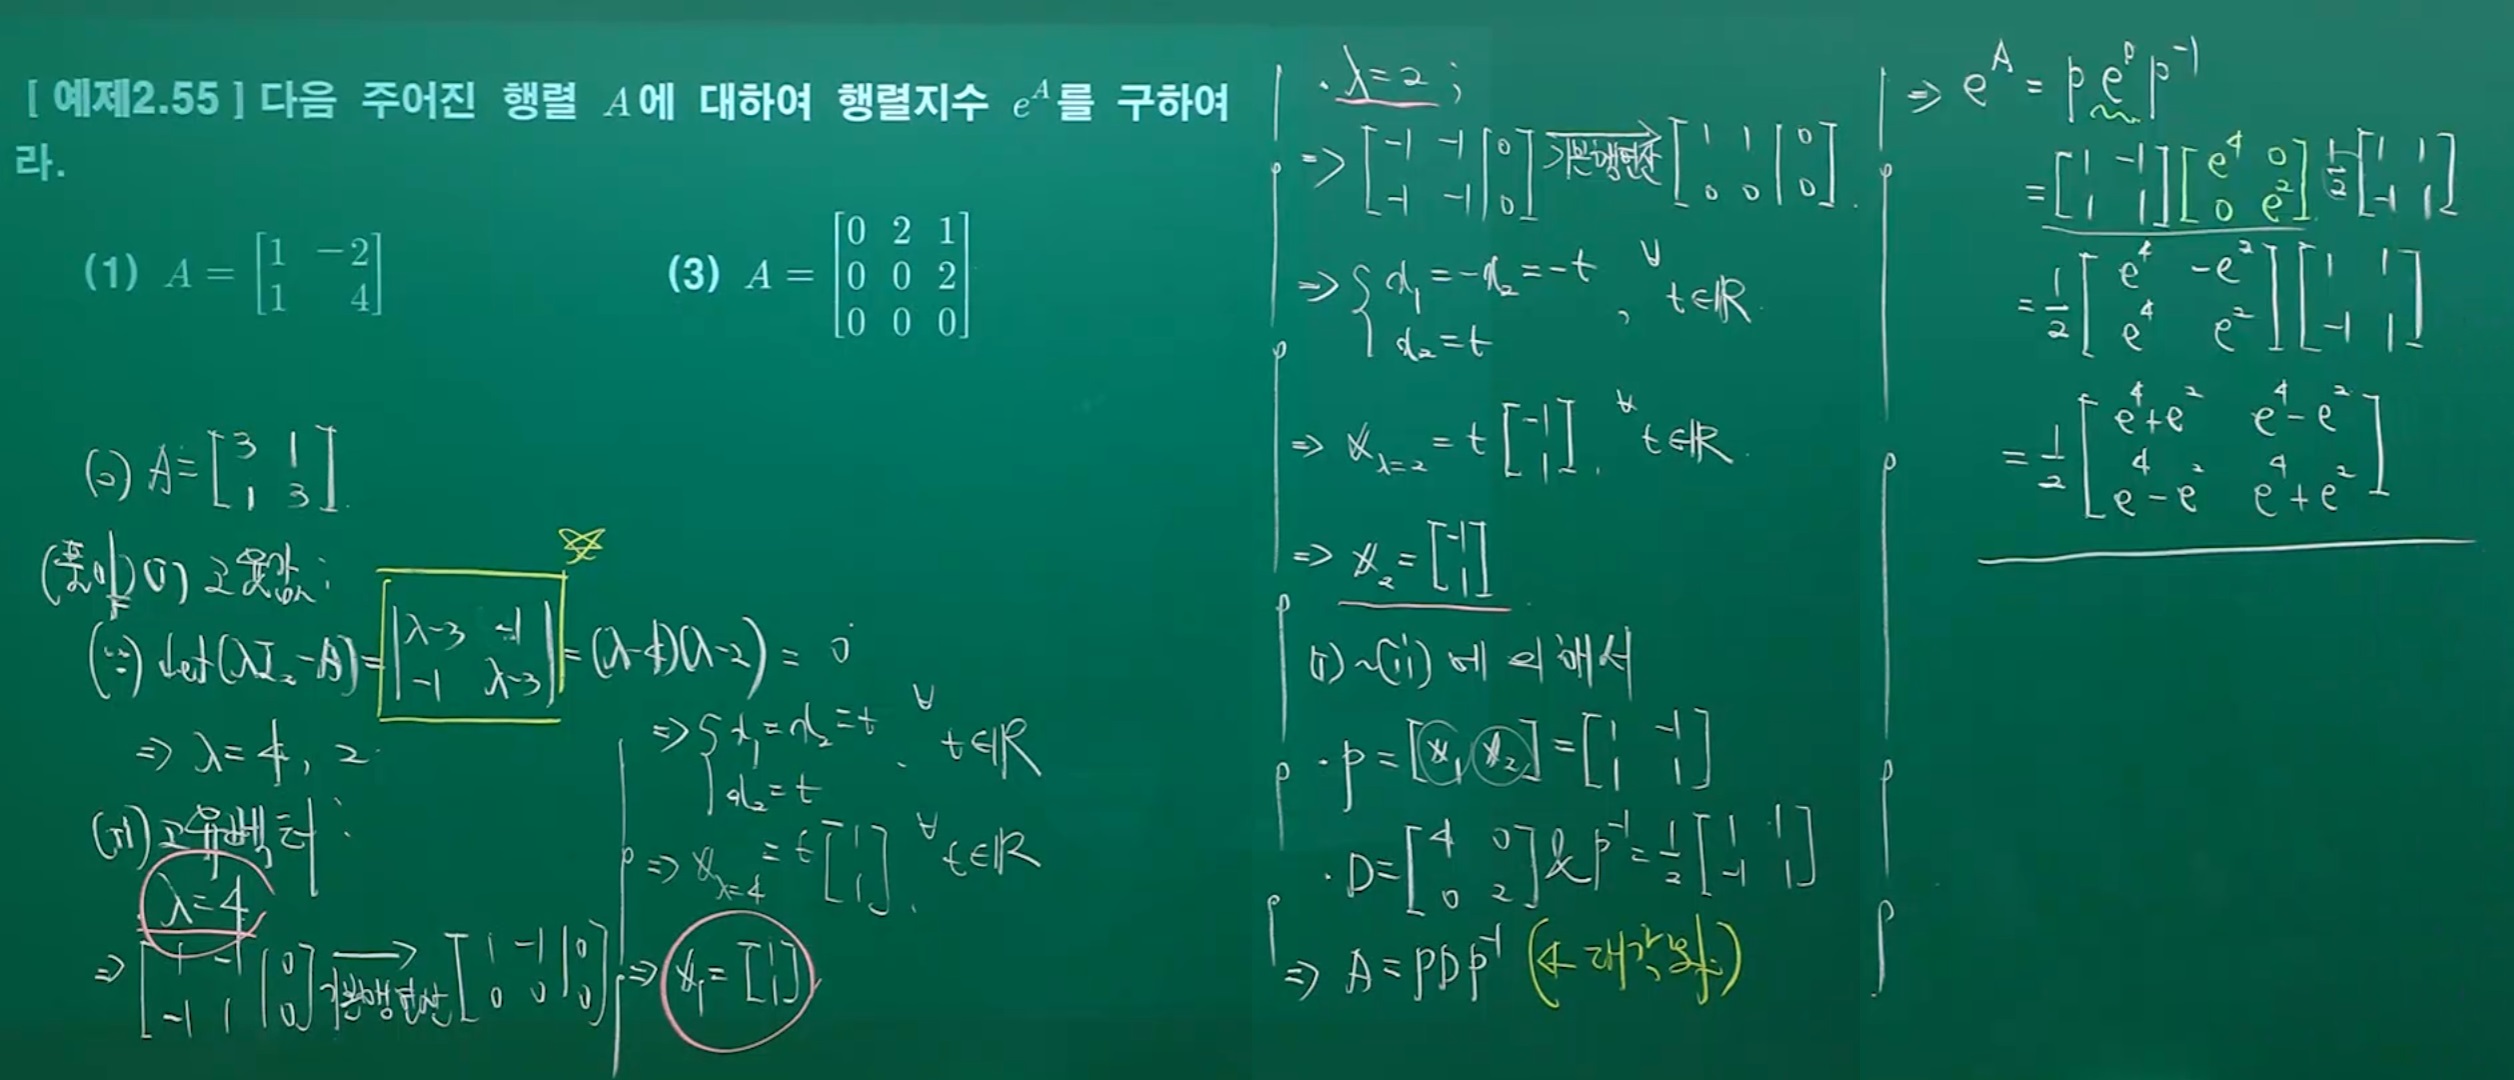 [ 예제2.55 ] 다음 주어진 행렬 A에 대하여 행렬지수 e^A를 구하여
라.
(1) A = [1 -2; 1 4]
(3) A = [0 2 1; 0 0 2; 0 0 0]
(2) A = [3 1; 1 3]
(풀이) (i) 고윳값 :
(∵) det(λI₂ - A) = |λ-3 -1; -1 λ-3| = (λ-4)(λ-2) = 0
⇒ λ = 4, 2
(ii) 고유벡터 :
λ=4
⇒ [1 -1 | 0; -1 1 | 0] 기본행연산→ [1 -1 | 0; 0 0 | 0]
⇒ { x₁ = x₂ = t, x₂ = t . ∀t∈ℝ
⇒ 𝕏_{λ=4} = t [1; 1] . ∀t∈ℝ
⇒ 𝕏₁ = [1; 1]
· λ=2 ;
⇒ [-1 -1 | 0; -1 -1 | 0] 기본행연산→ [1 1 | 0; 0 0 | 0] .
⇒ { x₁ = -x₂ = -t, x₂ = t , ∀t∈ℝ.
⇒ 𝕏_{λ=2} = t [-1; 1] . ∀t∈ℝ.
⇒ 𝕏₂ = [-1; 1]
(i)~(ii) 에 의해서
· P = [𝕏₁ 𝕏₂] = [1 -1; 1 1]
· D = [4 0; 0 2] & P⁻¹ = 1/2 [1 1; -1 1]
⇒ A = PDP⁻¹ (← 대각화.)
⇒ e^A = P e^D P⁻¹
= [1 -1; 1 1] [e⁴ 0; 0 e²] 1/2 [1 1; -1 1]
= 1/2 [e⁴ -e²; e⁴ e²] [1 1; -1 1]
= 1/2 [e⁴+e² e⁴-e²; e⁴-e² e⁴+e²]